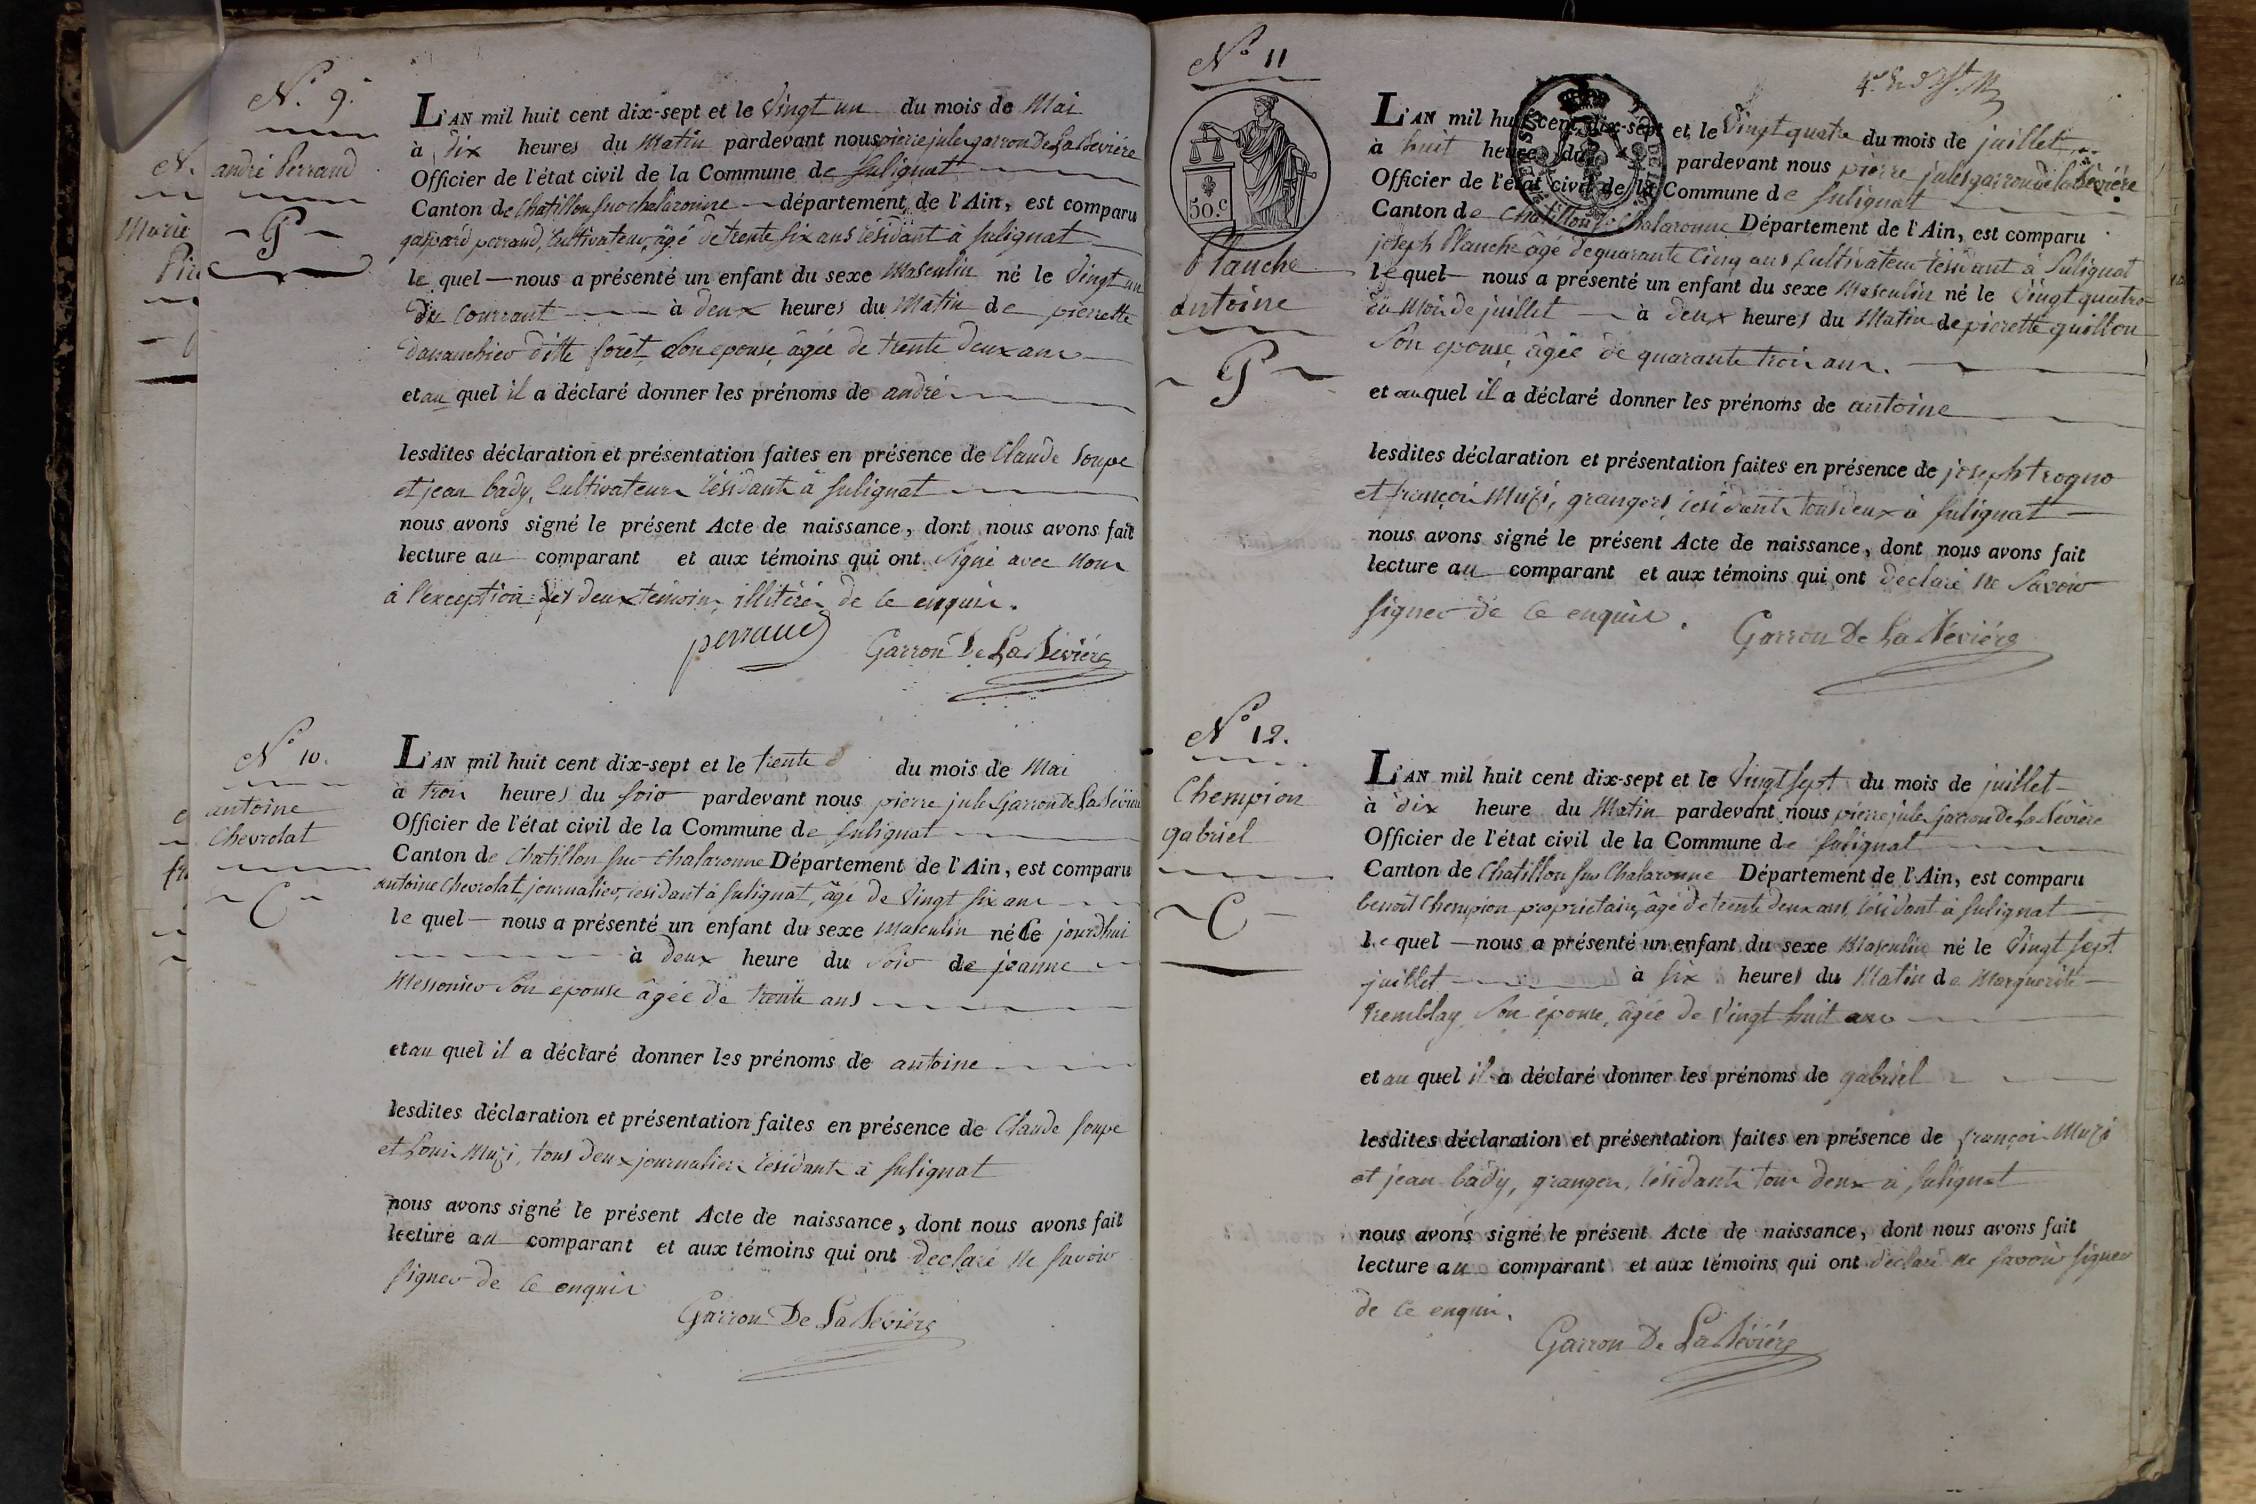 N.° 9.
andré Perraud
P
L'AN mil huit cent dix-sept et le vingt un du mois de Mai
à dix heures du Matin pardevant nous pierre jule garron De La Bévière
Officier de l'état civil de la Commune de Sulignat
Canton de Chatillon sur chalaronne département de l'Ain, est comparu
gaspard perraud, Cultivateur, âgé de trente six ans résidant à Sulignat
le quel nous a présenté un enfant du sexe Masculin né le vingt un
du Courrant à deux heures du Matin de pierrette
ditte forêt, son epouse, âgée de trente deux ans
et au quel il a déclaré donner les prénoms de andré
lesdites déclaration et présentation faites en présence de Claude Soupe
et jean bady, Cultivateurs résidants à Sulignat
nous avons signé le présent Acte de naissance, dont nous avons fait
lecture au comparant et aux témoins qui ont signé avec Nous
à l'exception des deux temoins illitérés de ce enquis.
perraud
Garron De La Bévière
N° 10.
antoine
Chevrolat
C
L'AN mil huit cent dix-sept et le trente du mois de Mai
à trois heures du soir pardevant nous pierre jule Garron De La Bévière
Officier de l'état civil de la Commune de Sulignat
Canton de Chatillon sur Chalaronne Département de l'Ain, est comparu
antoine Chevrolat, journalier, résidant à Sulignat, âgé de vingt six ans
le quel nous a présenté un enfant du sexe Masculin né Ce jourdhui
à deux heure du soir de jeanne
Messonier son épouse âgée de trente ans
et au quel il a déclaré donner les prénoms de antoine
lesdites déclaration et présentation faites en présence de Claude Soupe
et Louis Muzi, tous deux journaliers résidants à Sulignat
nous avons signé le présent Acte de naissance, dont nous avons fait
lecture au comparant et aux témoins qui ont declaré ne savoir
signer de ce enquis
Garron De La Bévière
N° 11
50.c
Planche
antoine
P
L'AN mil huit cent dix-sept et le vingt quatre du mois de juillet
à huit heure du pardevant nous pierre jules garron de la Bévière
Officier de l'état civil de la Commune de Sulignat
Canton de Chatillon s. Chalaronne Département de l'Ain, est comparu
joseph Planche âgé de quarante Cinq ans Cultivateur résidant à Sulignat
le quel nous a présenté un enfant du sexe Masculin né le vingt quatre
du Mois de juillet à deux heures du Matin de pierette guillon
son epouse, âgée de quarante trois ans.
et au quel il a déclaré donner les prénoms de antoine
lesdites déclaration et présentation faites en présence de joseph trogno
et françois Muzi, grangers, résidants tous deux à Sulignat
nous avons signé le présent Acte de naissance, dont nous avons fait
lecture au comparant et aux témoins qui ont declaré ne savoir
signer de ce enquis.
Garron De La Bévière
N° 12.
Chempion
gabriel
C
L'AN mil huit cent dix-sept et le vingt sept du mois de juillet
à dix heure du Matin pardevant nous pierre jule Garron De La Bévière
Officier de l'état civil de la Commune de Sulignat
Canton de Chatillon sur Chalaronne Département de l'Ain, est comparu
benoit Chempion proprietaire, âgé de trente deux ans, résidant à Sulignat
le quel nous a présenté un enfant du sexe Masculin né le vingt sept
juillet à six heures du Matin de Marguerite
tremblay son épouse, âgée de vingt huit ans
et au quel il a déclaré donner les prénoms de gabriel
lesdites déclaration et présentation faites en présence de françois Muzi
et jean bady, grangers, résidants tous deux à Sulignat
nous avons signé le présent Acte de naissance, dont nous avons fait
lecture au comparant et aux témoins qui ont déclaré ne savoir signer
de ce enquis.
Garron De La Bévière